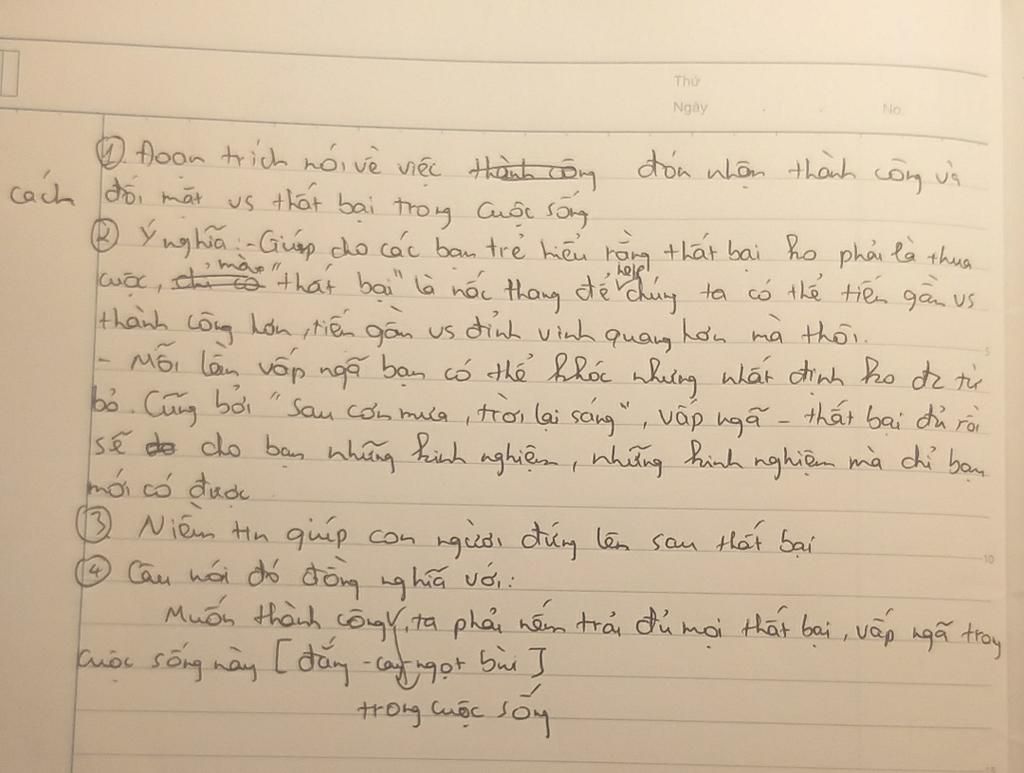 Thứ
Ngày No.
① Đoạn trích nói về việc thành công đón nhận thành công và
cách đối mặt vs thất bại trong cuộc sống
② Ý nghĩa: - Giúp cho các bạn trẻ hiểu rằng thất bại ko phải là thua
cuộc, chỉ có mà "thất bại" là nấc thang để help chúng ta có thể tiến gần vs
thành công hơn, tiến gần vs đỉnh vinh quang hơn mà thôi.
- Mỗi lần vấp ngã bạn có thể khóc nhưng nhất định ko đc từ
bỏ. Cũng bởi "sau cơn mưa, trời lại sáng", vấp ngã - thất bại đủ rồi
sẽ cho bạn những kinh nghiệm, những kinh nghiệm mà chỉ bạn
mới có được
③ Niềm tin giúp con người đứng lên sau thất bại
④ Câu nói đó đồng nghĩa với:
Muốn thành công, ta phải nếm trải đủ mọi thất bại, vấp ngã trog
cuộc sống này [đắng - cay ngọt bùi]
trong cuộc sống
5
10